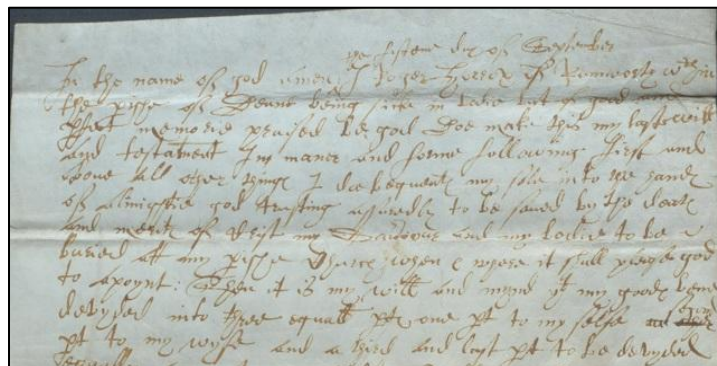 ye fistene day of September
In the name of god amen I Roger Hey of wthin
the pishe of Deane being sicke in bodie but of good and
pfect memorie praised be god doe make this my last will
and testament In maner and forme following first and
above all other things I doe bequeath my sole into the hands
of almightie god trusting assuredly to be saved by the death
and merits of Christ my Saviour and my bodie to be
buried att my pishe Church when & where it shall please god
to apoynt: Then it is my will and mynd that my goods be
devyded into three equall pts one pt to my selfe
pt to my wyfe and a third and last pt to be devyded
equally